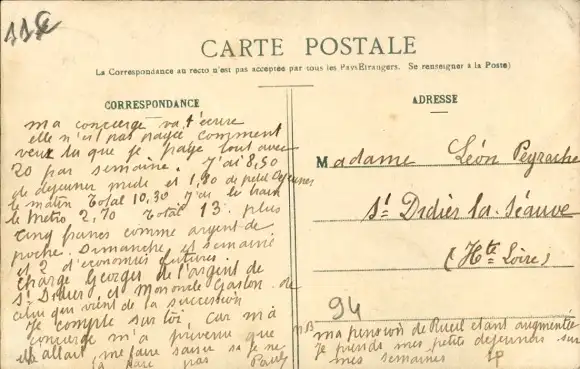 CARTE POSTALE
La Correspondance au recto n'est pas acceptée par tous les Pays Etrangers. Se renseigner à la Poste)
CORRESPONDANCE
ma concierge va t'écrire
elle n'est pas payée comment
veux tu que je paye tout avec
20 par semaine. J'ai 8,50
de dejeuner midi et 1,80 de petit dejeuner
le matin Total 10,30 J'ai le train
le métro 2,70 Total 13. plus
cinq francs comme argent de
poche. Dimanche et semaine
et 2 d'économies futures.
charge Georges de l'argent de
St Didier, et Mononcle Gaston de
celui qui vient de la succession
Je compte sur toi, car ma
concierge m'a prévenue que
elle allait me faire saisir si je ne
la paie pas
ADRESSE
Madame Léon Peyrache
St Didier-la-Séauve
(Hte Loire)
94
NB ma pension de Rueil etant augmentée
Je prends mes petits dejeuners sur
mes semaines